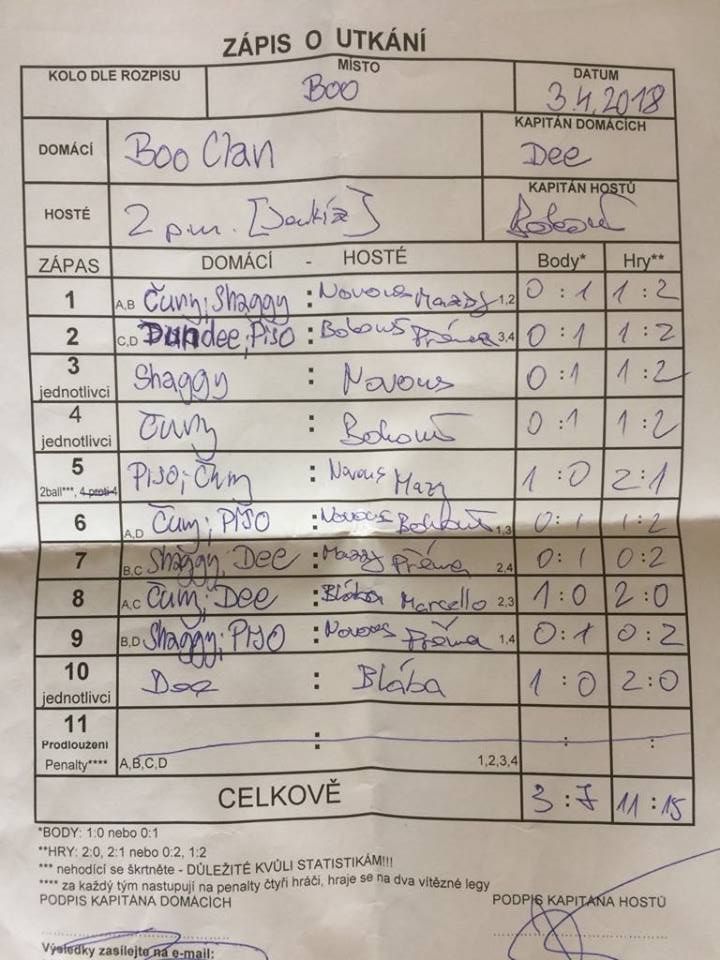 ZÁPIS O UTKÁNÍ
KOLO DLE ROZPISU MÍSTO DATUM
Boo 3.4.2018
DOMÁCÍ Boo Clan KAPITÁN DOMÁCÍCH
Dee
HOSTÉ 2 p.m. KAPITÁN HOSTŮ
Bohouš
ZÁPAS DOMÁCÍ - HOSTÉ Body* Hry**
1 A,B Čumy; Shaggy : Novous Mazzy 1,2 0 : 1 1 : 2
2 C,D Dundee, Piso : Bohouš Príma 3,4 0 : 1 1 : 2
3 jednotlivci Shaggy : Novous 0 : 1 1 : 2
4 jednotlivci Čumy : Bohouš 0 : 1 1 : 2
5 2ball***, 4 proti 4 Piso; Čumy : Novous Mazy 1 : 0 2 : 1
6 A,D Čumy; Piso : Novous Bohouš 1,3 0 : 1 1 : 2
7 B,C Shaggy, Dee : Mazzy Príma 2,4 0 : 1 0 : 2
8 A,C Čumy; Dee : Blába Marcello 2,3 1 : 0 2 : 0
9 B,D Shaggy; Piso : Novous Príma 1,4 0 : 1 0 : 2
10 jednotlivci Dee : Blába 1 : 0 2 : 0
11 : : :
Prodloužení
Penalty**** A,B,C,D 1,2,3,4
CELKOVĚ 3 : 7 11 : 15
*BODY: 1:0 nebo 0:1
**HRY: 2:0, 2:1 nebo 0:2, 1:2
*** nehodící se škrtněte - DŮLEŽITÉ KVŮLI STATISTIKÁM!!!
**** za každý tým nastupují na penalty čtyři hráči, hraje se na dva vítězné legy
PODPIS KAPITÁNA DOMÁCÍCH PODPIS KAPITÁNA HOSTŮ
Výsledky zasílejte na e-mail: